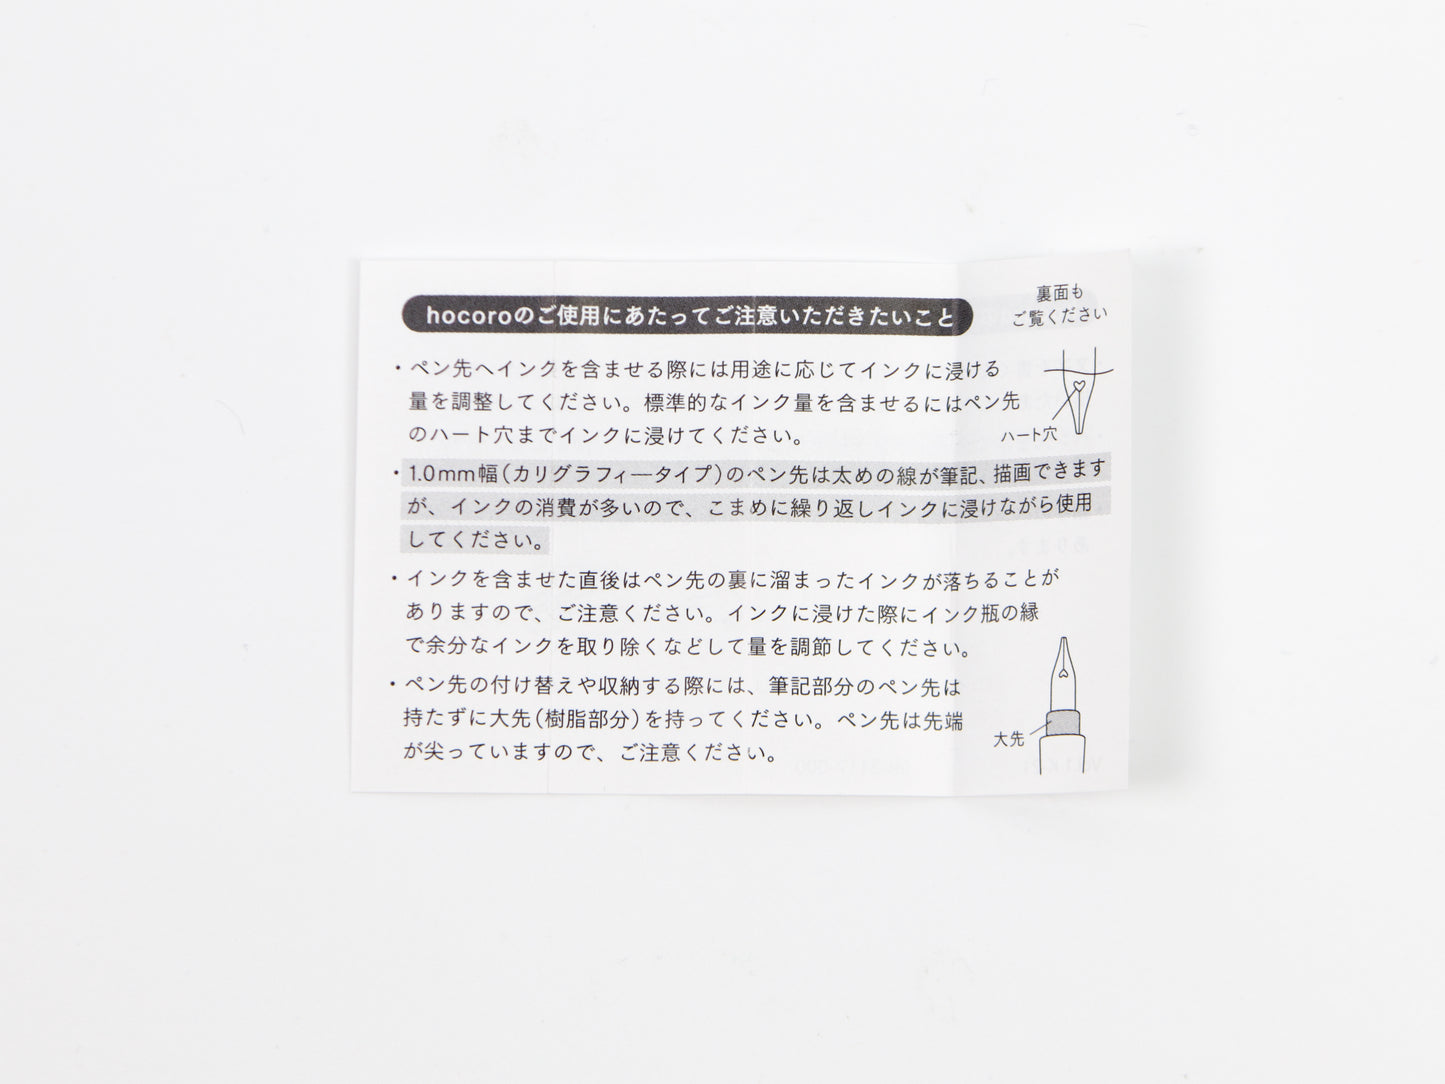 hocoroのご使用にあたってご注意いただきたいこと
裏面も
ご覧ください
・ペン先へインクを含ませる際には用途に応じてインクに浸ける
量を調整してください。標準的なインク量を含ませるにはペン先
のハート穴までインクに浸けてください。
ハート穴
・1.0mm幅(カリグラフィータイプ)のペン先は太めの線が筆記、描画できます
が、インクの消費が多いので、こまめに繰り返しインクに浸けながら使用
してください。
・インクを含ませた直後はペン先の裏に溜まったインクが落ちることが
ありますので、ご注意ください。インクに浸けた際にインク瓶の縁
で余分なインクを取り除くなどして量を調節してください。
・ペン先の付け替えや収納する際には、筆記部分のペン先は
持たずに大先(樹脂部分)を持ってください。ペン先は先端
が尖っていますので、ご注意ください。
大先